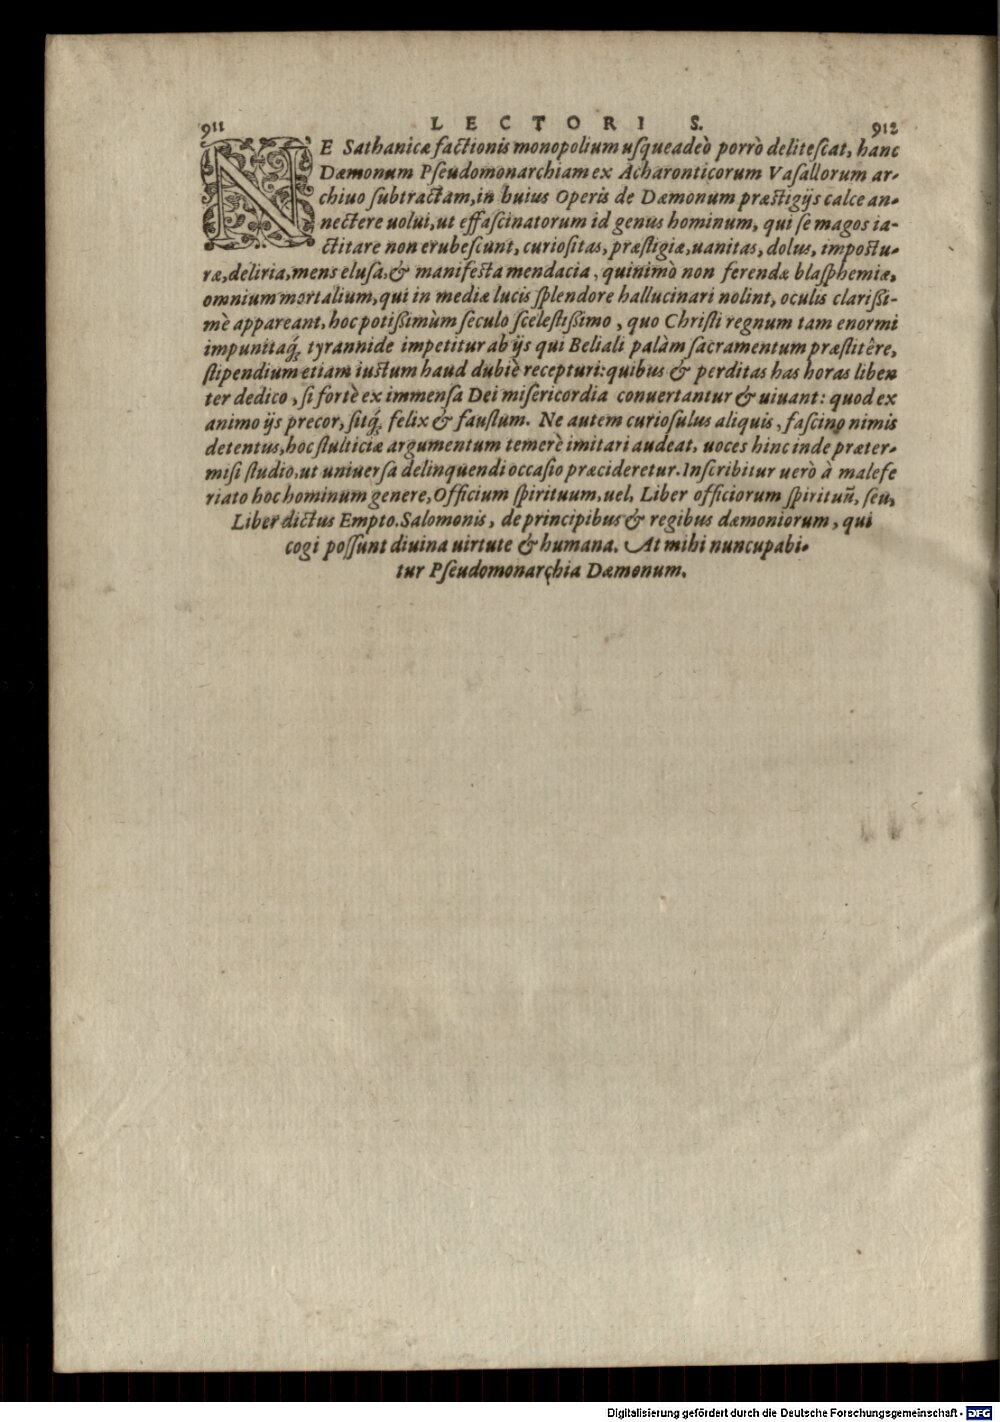 911 LECTORI S. 912
NE Sathanicæ factionis monopolium usqueadeò porrò delitescat, hanc
Dæmonum Pseudomonarchiam ex Acharonticorum Vasallorum ar-
chiuo subtractam, in huius Operis de Dæmonum præstigijs calce an-
nectere uolui, ut effascinatorum id genus hominum, qui se magos ia-
ctitare non erubescunt, curiositas, præstigiæ, uanitas, dolus, impostu-
ræ, deliria, mens elusa, & manifesta mendacia, quinimò non ferendæ blasphemiæ,
omnium mortalium, qui in mediæ lucis splendore hallucinari nolint, oculis clarißi-
mè appareant, hoc potißimùm seculo scelestißimo, quo Christi regnum tam enormi
impunitaq́; tyrannide impetitur ab ijs qui Beliali palàm sacramentum præstitêre,
stipendium etiam iustum haud dubiè recepturi: quibus & perditas has horas liben
ter dedico, si fortè ex immensa Dei misericordia conuertantur & uiuant: quod ex
animo ijs precor, sitq́; felix & faustum. Ne autem curiosulus aliquis, fascino nimis
detentus, hoc stulticiæ argumentum temerè imitari audeat, uoces hinc inde præter-
misi studio, ut uniuersa delinquendi occasio præcideretur. Inscribitur uerò à malefe
riato hoc hominum genere, Officium spirituum, uel, Liber officiorum spirituū, seu,
Liber dictus Empto. Salomonis, de principibus & regibus dæmoniorum, qui
cogi possunt diuina uirtute & humana. At mihi nuncupabi-
tur Pseudomonarchia Dæmonum.
Digitalisierung gefördert durch die Deutsche Forschungsgemeinschaft - DFG